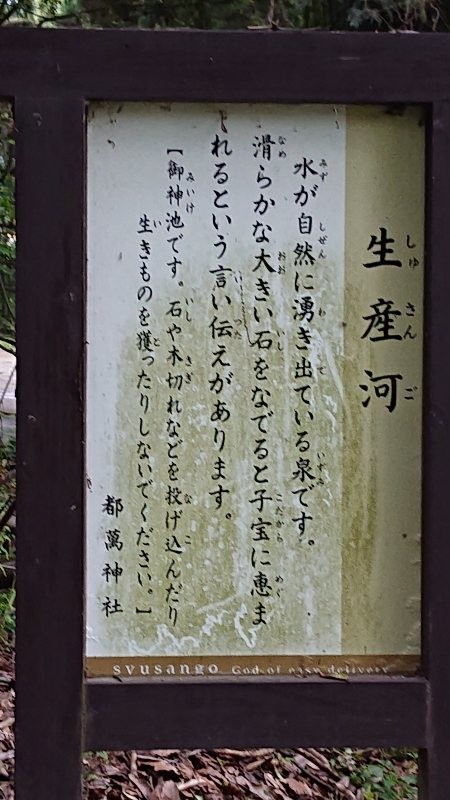 生産河
水が自然に湧き出ている泉です。
滑らかな大きい石をなでると子宝に恵ま
れるという言い伝えがあります。
【御神池です。石や木切れなどを投げ込んだり
生きものを獲ったりしないでください。】
都萬神社
syusango God of easy delivery